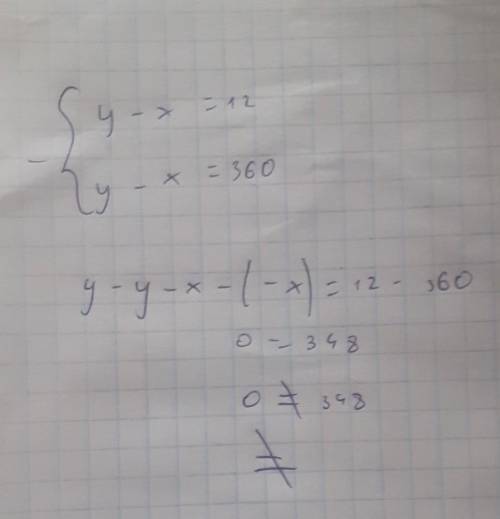 y - x = 12
y - x = 360
y - y - x - (-x) = 12 - 360
0 = 348
0 ≠ 348
≠